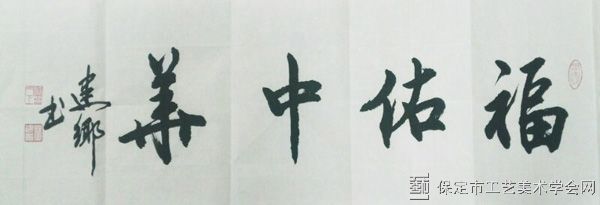 福佑中華
建鄉書
保定市工艺美术学会网